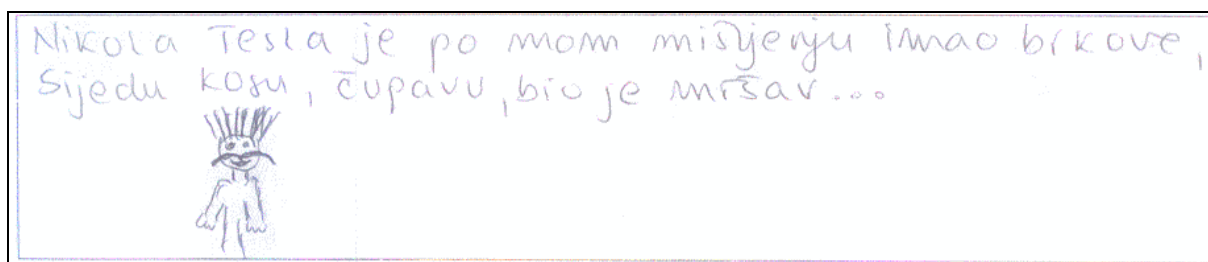 Nikola Tesla je po mom mišljenju imao brkove,
sijedu kosu, čupavu, bio je mršav...